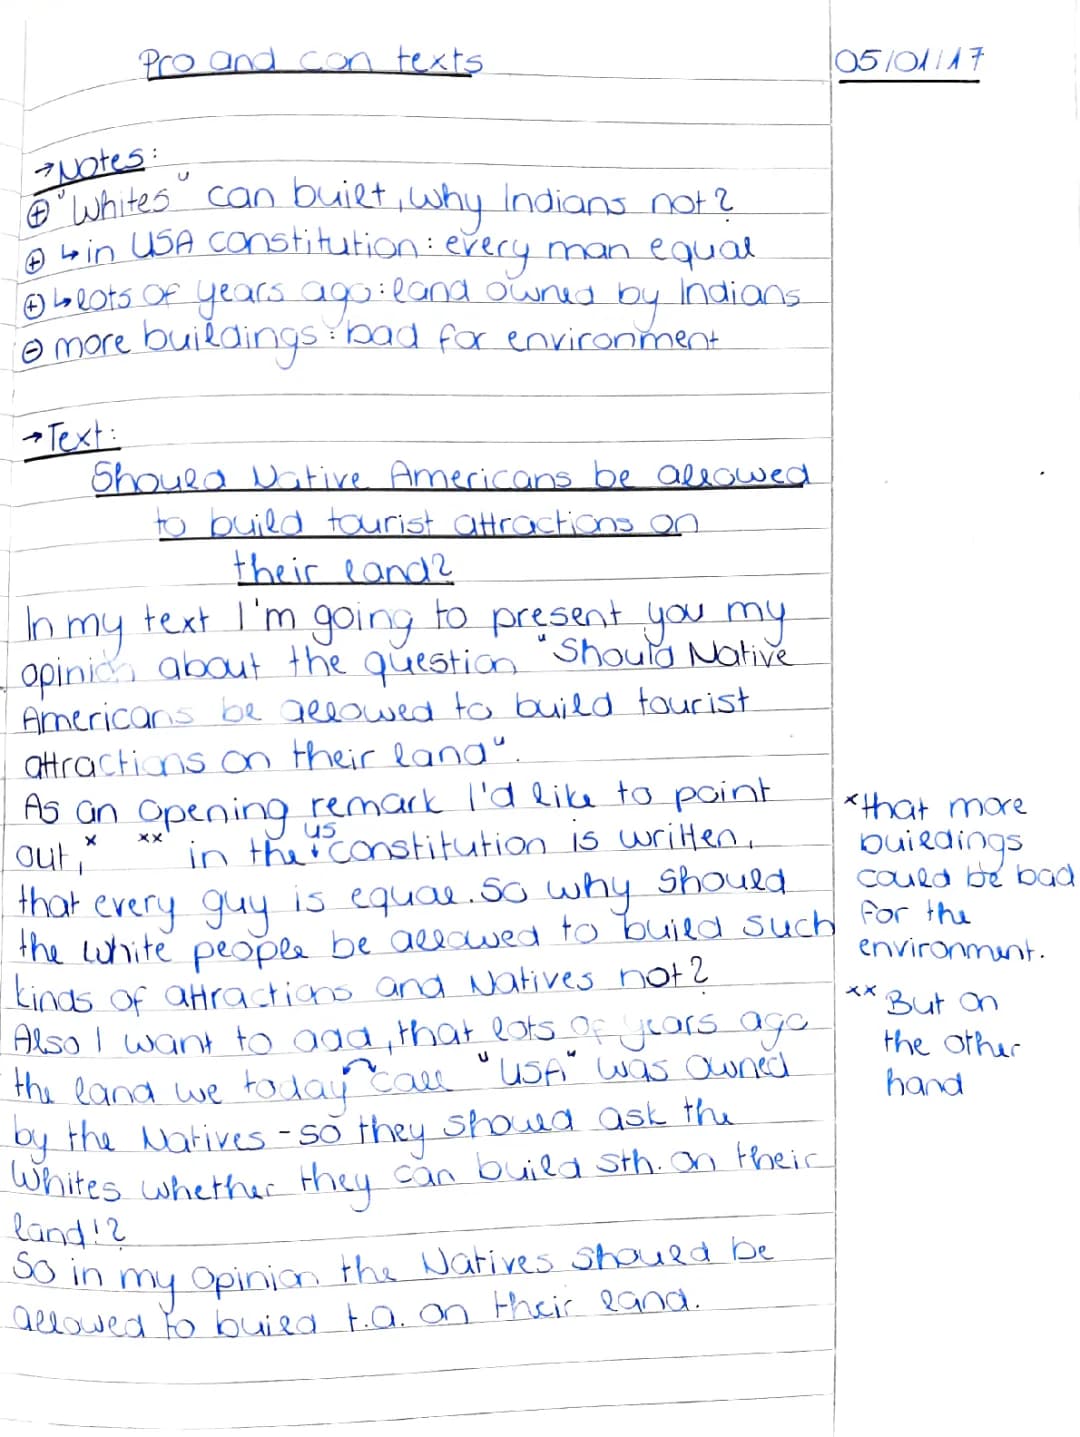 Pro and con texts
05/01/17
→Notes:
⊕ "Whites" can built, why Indians not?
⊕ ↳in USA constitution: every man equal
⊕ ↳lots of years ago: land owned by Indians
⊖ more buildings: bad for environment
→Text:
Should Native Americans be allowed
to build tourist attractions on
their land?
In my text I'm going to present you my
opinion about the question "Should Native
Americans be allowed to build tourist
attractions on their land".
As an opening remark I'd like to point
out,* ** in the US constitution is written,
that every guy is equal. So why should
the white people be allowed to build such
kinds of attractions and Natives not?
Also I want to add, that lots of years ago
the land we today call "USA" was owned
by the Natives - so they should ask the
Whites whether they can build sth. on their
land!?
So in my opinion the Natives should be
allowed to build t.a. on their land.
*that more
buildings
could be bad
for the
environment.
** But on
the other
hand